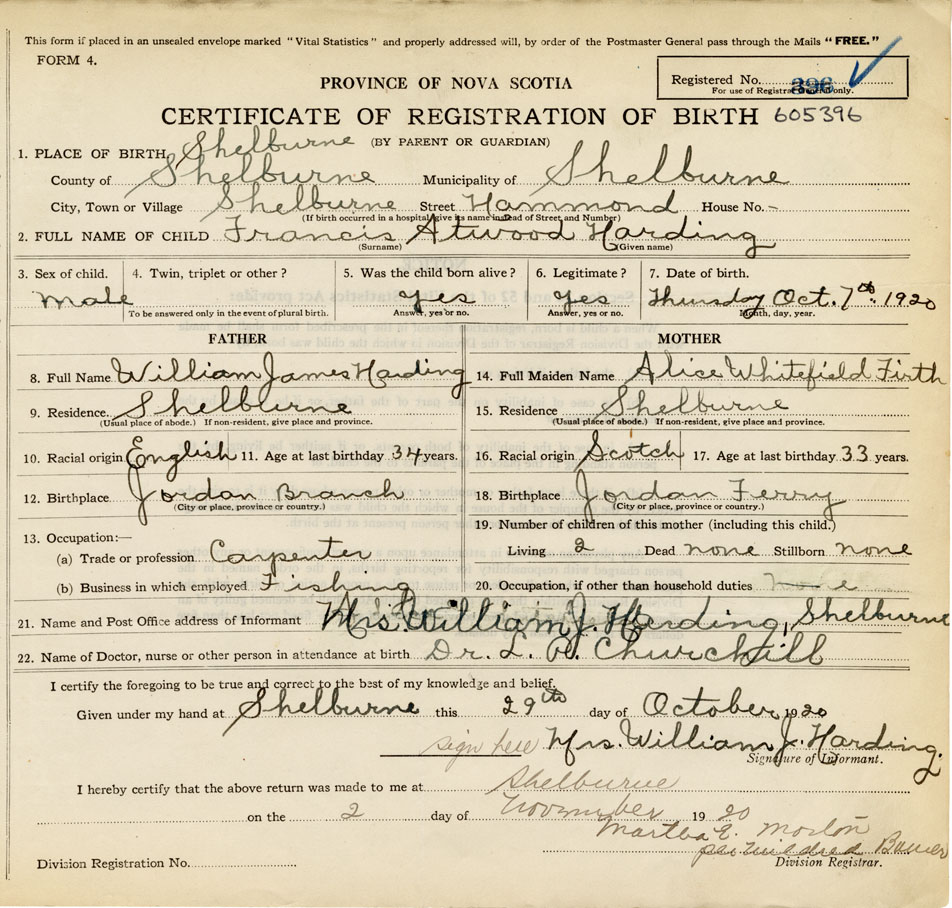 This form if placed in an unsealed envelope marked "Vital Statistics" and properly addressed will, by order of the Postmaster General pass through the Mails "FREE."
FORM 4.
PROVINCE OF NOVA SCOTIA
Registered No. 396
For use of Registrar General only.
CERTIFICATE OF REGISTRATION OF BIRTH 605396
(BY PARENT OR GUARDIAN)
1. PLACE OF BIRTH, Shelburne
County of Shelburne Municipality of Shelburne
City, Town or Village Shelburne Street Hammond House No. -
(If birth occurred in a hospital give its name instead of Street and Number)
2. FULL NAME OF CHILD Francis Atwood Harding
(Surname) (Given name)
3. Sex of child. 4. Twin, triplet or other? 5. Was the child born alive? 6. Legitimate? 7. Date of birth.
Male Yes Yes Thursday Oct. 7th. 1920
To be answered only in the event of plural birth. Answer, yes or no. Answer, yes or no. Month, day, year.
FATHER MOTHER
8. Full Name William James Harding 14. Full Maiden Name Alice Whitefield Firth
9. Residence. Shelburne 15. Residence Shelburne
(Usual place of abode.) If non-resident, give place and province. (Usual place of abode.) If non-resident, give place and province.
10. Racial origin English 11. Age at last birthday 34 years. 16. Racial origin Scotch 17. Age at last birthday 33 years.
12. Birthplace Jordan Branch 18. Birthplace Jordan Ferry
(City or place, province or country.) (City or place, province or country.)
13. Occupation:— 19. Number of children of this mother (including this child.)
(a) Trade or profession Carpenter Living 2 Dead none Stillborn none
(b) Business in which employed Fishing 20. Occupation, if other than household duties none
21. Name and Post Office address of Informant Mrs. William J. Harding, Shelburne
22. Name of Doctor, nurse or other person in attendance at birth Dr. L. Churchill
I certify the foregoing to be true and correct to the best of my knowledge and belief.
Given under my hand at Shelburne this 29th day of October 1920
sign here Mrs. William J. Harding.
Signature of Informant.
I hereby certify that the above return was made to me at Shelburne
on the 2 day of November 1920
Martha E. Morton
per Mildred Bower
Division Registration No. Division Registrar.